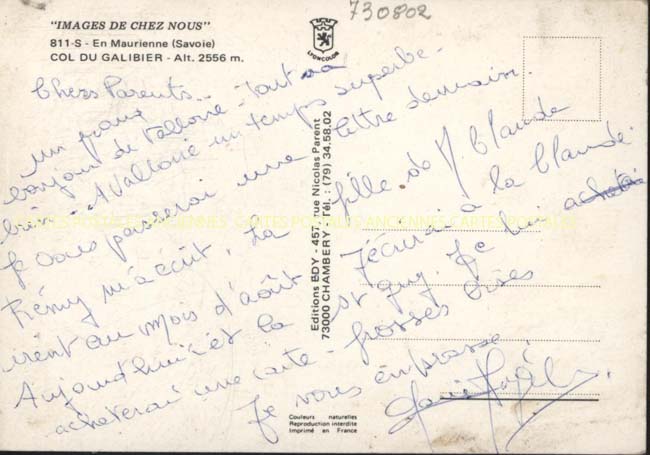 "IMAGES DE CHEZ NOUS"
811-S - En Maurienne (Savoie)
COL DU GALIBIER - Alt. 2556 m.
730802
LYONCOLOR
Chers Parents.
un grand
bonjour de Valloire - Tout va
bien. A Valloire un temps superbe -
Je vous posterai une lettre demain.
Rémy m'a écrit. La fille de M. Claude
vient au mois d'août. J'écrirai à la Claude.
Aujourd'hui c'est la St Guy. Je lui
achèterai une carte - grosses bises
Je vous embrasse.
Editions EDY - 457, rue Nicolas Parent
73000 CHAMBERY - Tél. : (79) 34.58.02
CARTES POSTALES ANCIENNES CARTES POSTALES ANCIENNES CARTES POSTALES
Couleurs naturelles
Reproduction interdite
Imprimé en France